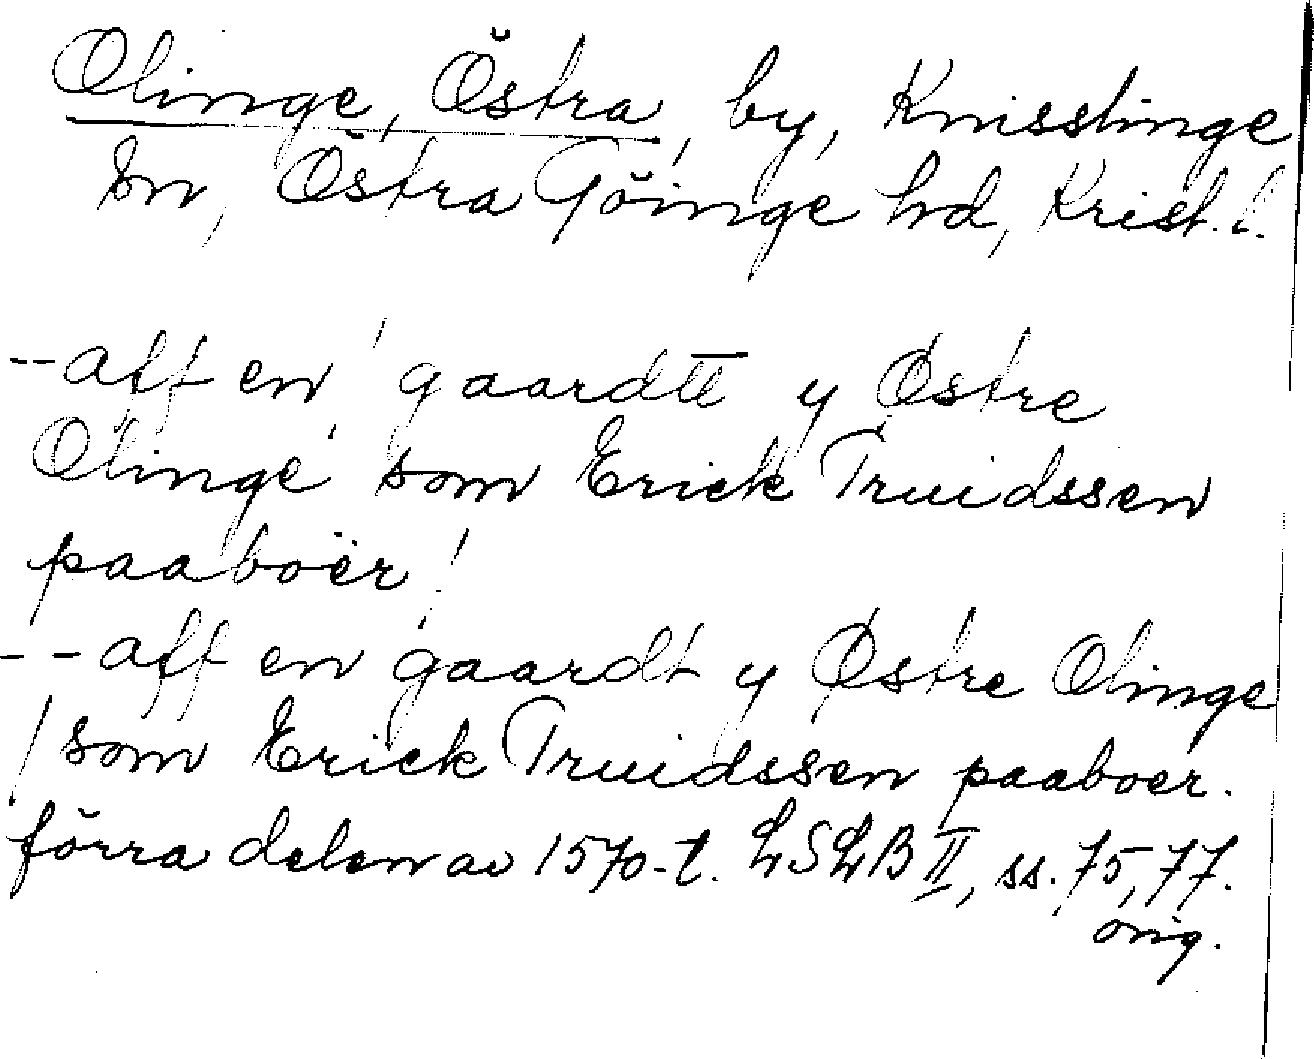 Olinge, Östra, by, Knisslinge
sn, Östra Göinge hd, Krist. l.
-- aff en gaardtt y Østre
Olinge som Erick Truidssen
paaboër /
-- aff en gaardt y Østre Olinge
/ som Erick Truidssen paaboer.
förra delen av 1570-t. LSLB II, ss. 75, 77.
orig.